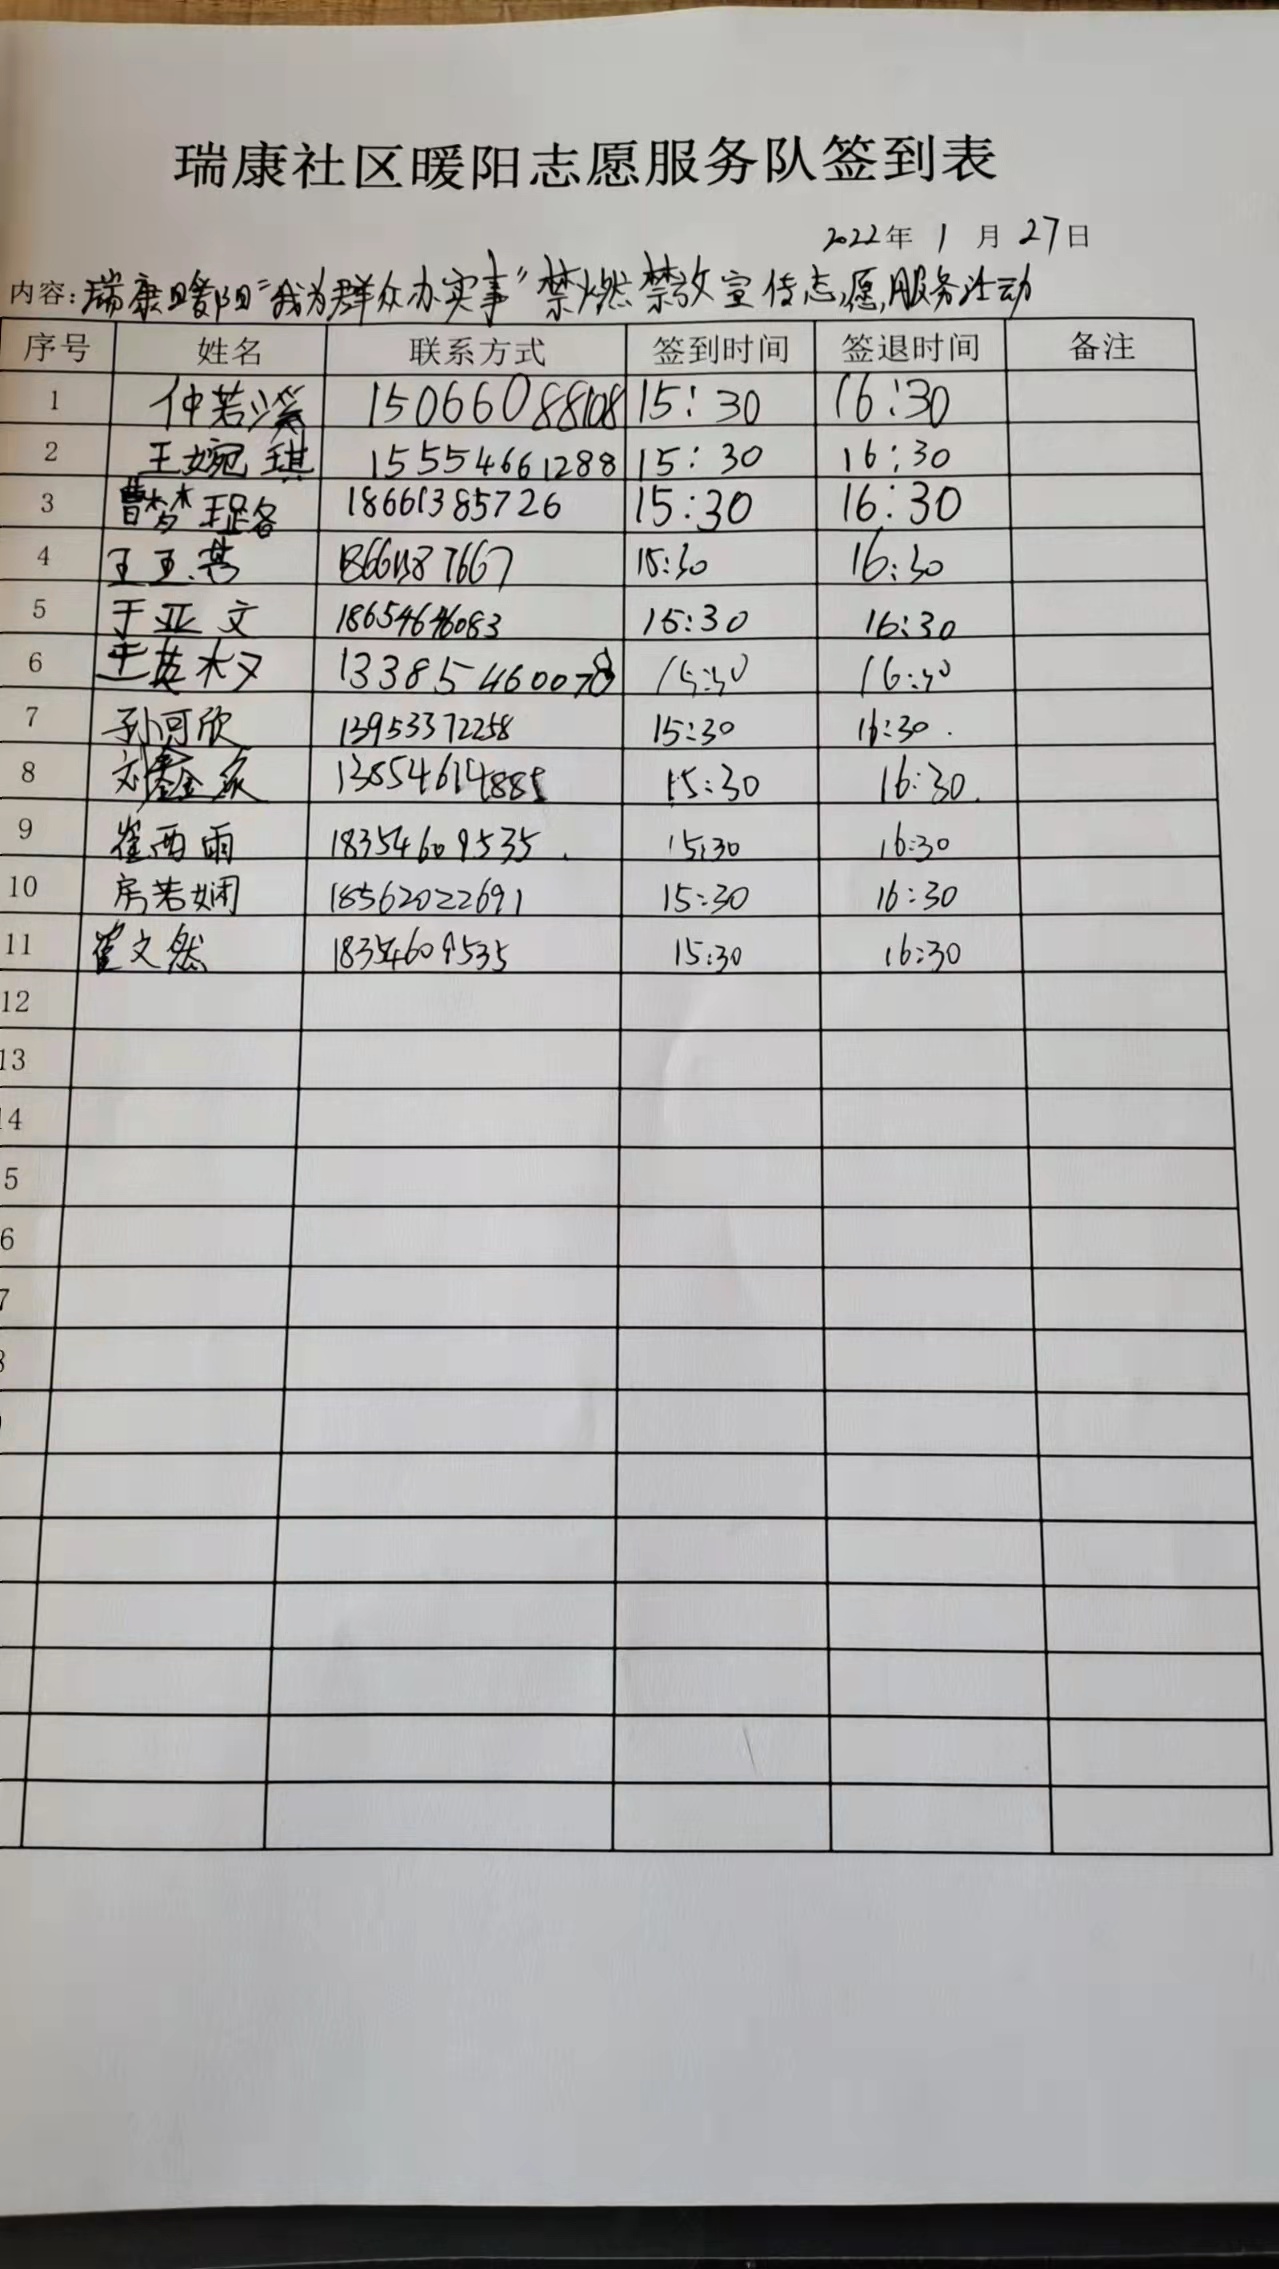 瑞康社区暖阳志愿服务队签到表
2022年 1 月 27日
内容:瑞康暖阳“我为群众办实事”禁燃禁放宣传志愿服务活动
序号 姓名 联系方式 签到时间 签退时间 备注
1 仲若溪 15066088108 15:30 16:30
2 王婉琪 15554661288 15:30 16:30
3 曹梦珺 18661385726 15:30 16:30
4 15:30 16:30
5 于亚文 18654646083 15:30 16:30
6 13385460078 15:30 16:30
7 孙可欣 13953372258 15:30 16:30
8 刘鑫 15:30 16:30
9 崔西雨 18354609535 15:30 16:30
10 房若娴 18562022691 15:30 16:30
11 崔文然 18354609535 15:30 16:30
12
13
14
5
6
7